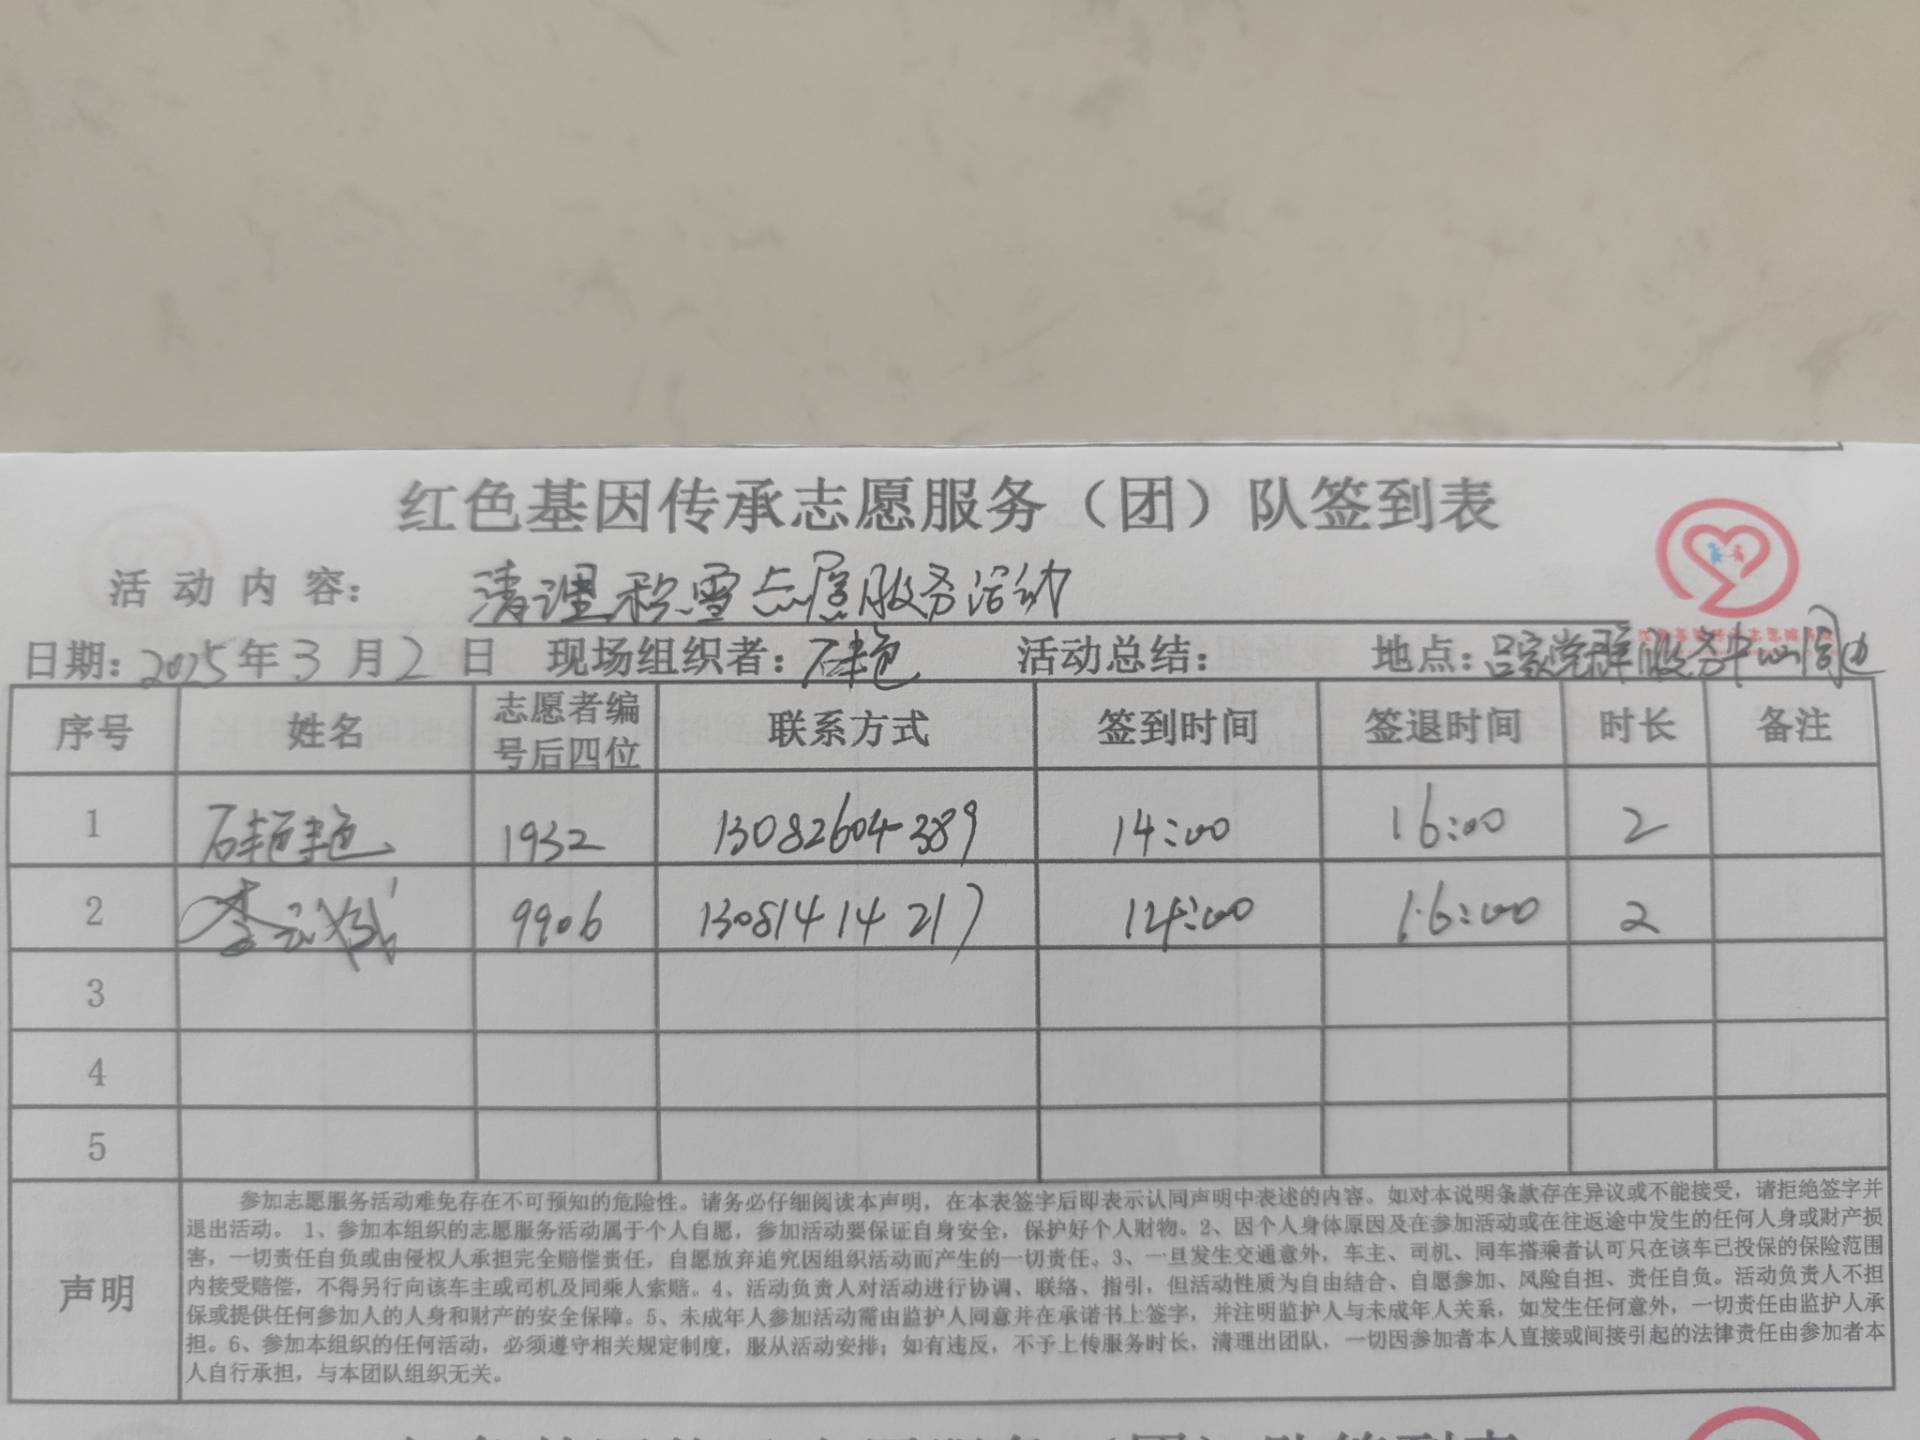 红色基因传承志愿服务（团）队签到表
活动内容： 清理积雪志愿服务活动
日期：2025年3月2日 现场组织者：石艳 活动总结： 地点：吕家党群服务中心周边
序号 姓名 志愿者编号后四位 联系方式 签到时间 签退时间 时长 备注
1 石艳艳 1932 13082604389 14:00 16:00 2
2 李 9906 13081414217 14:00 16:00 2
3
4
5
声明
参加志愿服务活动难免存在不可预知的危险性。请务必仔细阅读本声明，在本表签字后即表示认同声明中表述的内容。如对本说明条款存在异议或不能接受，请拒绝签字并
退出活动。 1、参加本组织的志愿服务活动属于个人自愿，参加活动要保证自身安全，保护好个人财物。2、因个人身体原因及在参加活动或在往返途中发生的任何人身或财产损
害，一切责任自负或由侵权人承担完全赔偿责任，自愿放弃追究因组织活动而产生的一切责任。3、一旦发生交通意外，车主、司机、同车搭乘者认可只在该车已投保的保险范围
内接受赔偿，不得另行向该车主或司机及同乘人索赔。4、活动负责人对活动进行协调、联络、指引，但活动性质为自由结合、自愿参加、风险自担、责任自负。活动负责人不担
保或提供任何参加人的人身和财产的安全保障。5、未成年人参加活动需由监护人同意并在承诺书上签字，并注明监护人与未成年人关系，如发生任何意外，一切责任由监护人承
担。6、参加本组织的任何活动，必须遵守相关规定制度，服从活动安排；如有违反，不予上传服务时长，清理出团队，一切因参加者本人直接或间接引起的法律责任由参加者本
人自行承担，与本团队组织无关。